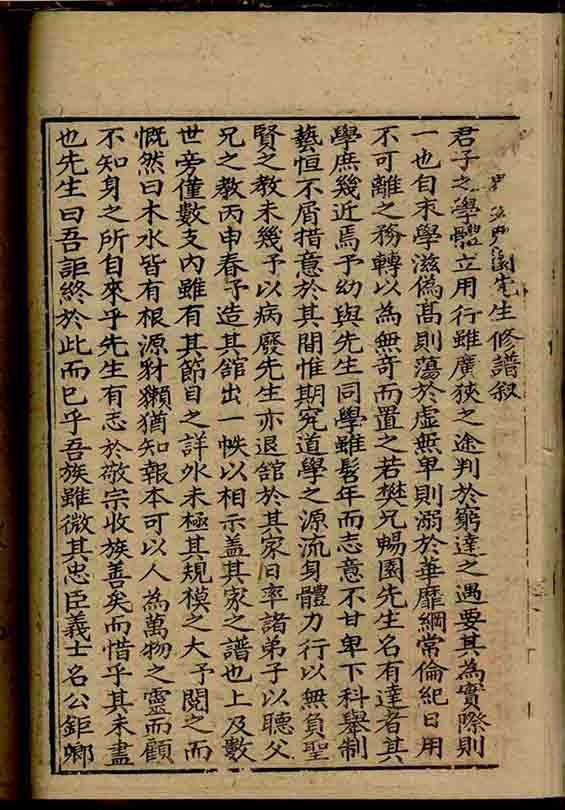 園先生修譜叙
君子之學體立用行雖廣狹之途判於窮達之遇要其為實際則
一也自末學滋偽髙則蕩於虛無卑則溺於華靡綱常倫紀日用
不可離之務轉以為無竒而置之若樊兄暢園先生名有達者其
學庶幾近焉予幼與先生同學雖髫年而志意不甘卑下科舉制
藝恒不屑措意於其間惟期究道學之源流身體力行以無負聖
賢之教未幾予以病廢先生亦退舘於其家日率諸弟子以聽父
兄之教丙申春予造其舘出一帙以相示盖其家之譜也上及數
世旁僅數支內雖有其節目之詳外未極其規模之大予閱之而
慨然曰木水皆有根源豺獺猶知報本可以人為萬物之靈而顧
不知身之所自來乎先生有志於敬宗收族善矣而惜乎其未盡
也先生曰吾詎終於此而已乎吾族雖微其忠臣義士名公鉅卿